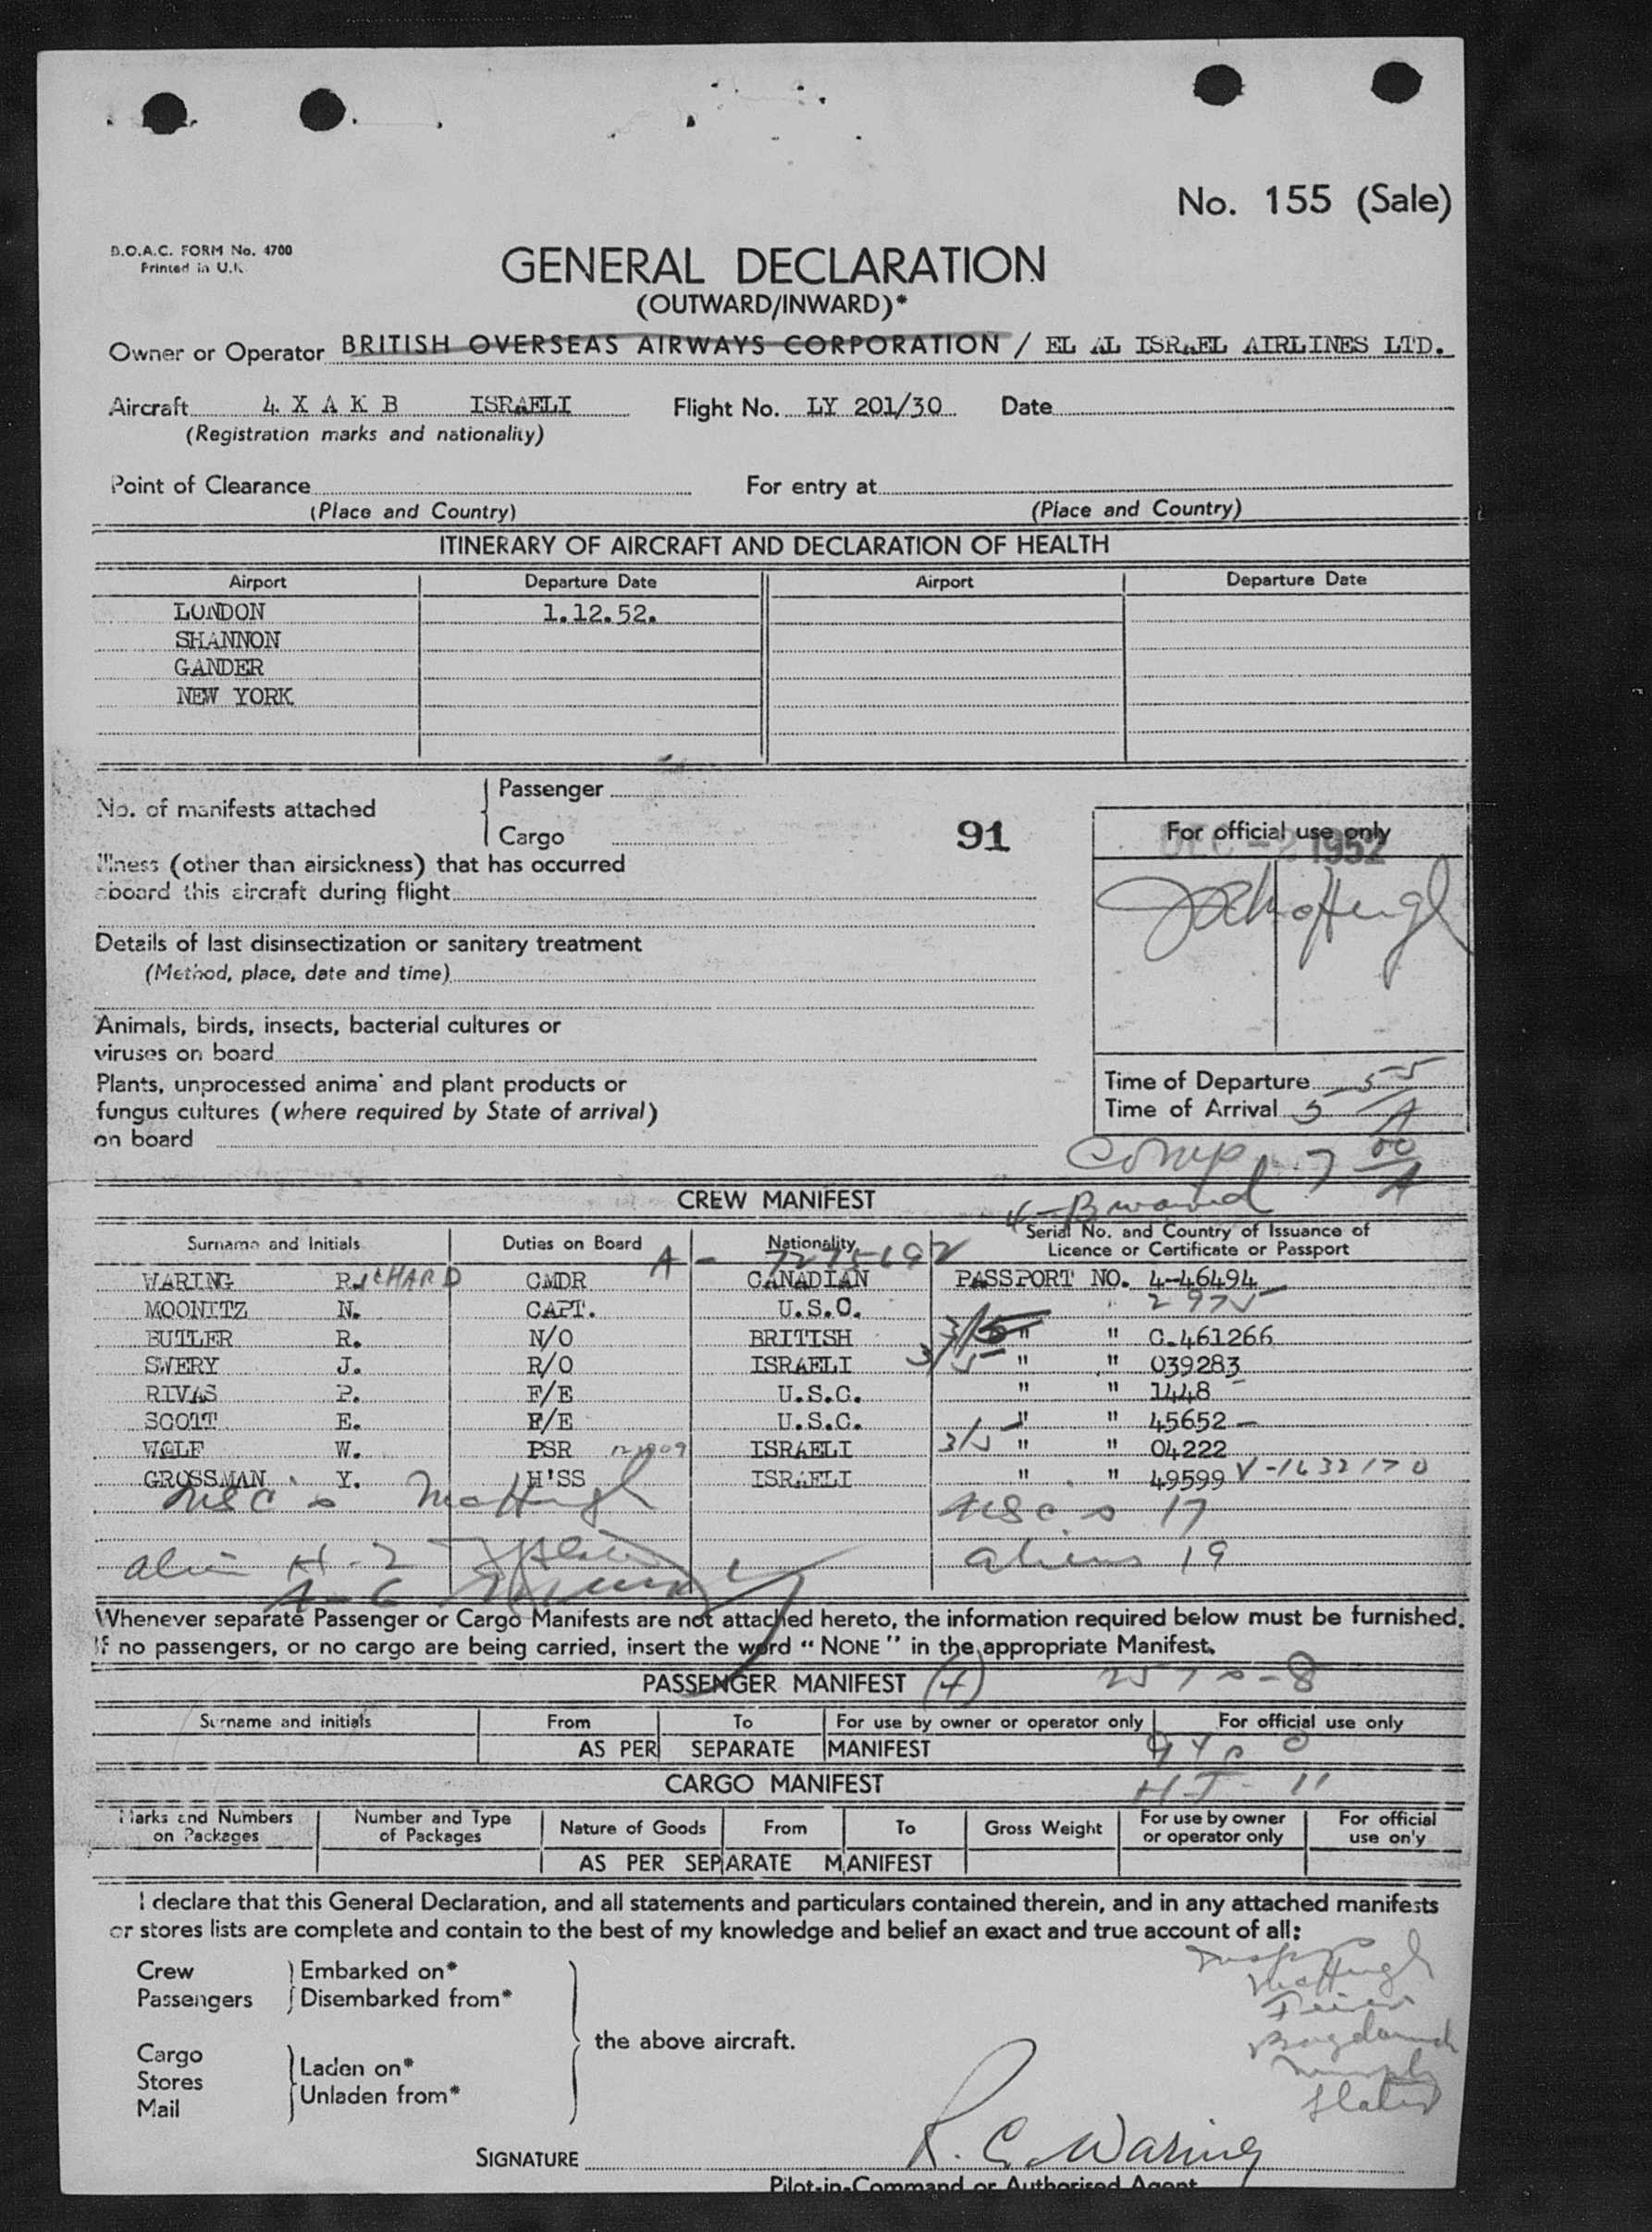 No. 155 (Sale)
B.O.A.C. FORM No. 4700
Printed in U.K.
GENERAL DECLARATION
(OUTWARD/INWARD)*
Owner or Operator BRITISH OVERSEAS AIRWAYS CORPORATION / EL AL ISRAEL AIRLINES LTD.
Aircraft 4 X A K B ISRAELI Flight No. LY 201/30 Date
(Registration marks and nationality)
Point of Clearance For entry at
(Place and Country) (Place and Country)
ITINERARY OF AIRCRAFT AND DECLARATION OF HEALTH
Airport Departure Date Airport Departure Date
LONDON 1.12.52.
SHANNON
GANDER
NEW YORK
No. of manifests attached
Passenger
Cargo
91
For official use only
DEC -2 1952
Illness (other than airsickness) that has occurred
aboard this aircraft during flight
Details of last disinsectization or sanitary treatment
(Method, place, date and time)
Animals, birds, insects, bacterial cultures or
viruses on board
Plants, unprocessed animal and plant products or
fungus cultures (where required by State of arrival)
on board
Time of Departure
Time of Arrival
Comp. 7 00/A
CREW MANIFEST
Surname and Initials Duties on Board Nationality Serial No. and Country of Issuance of
Licence or Certificate or Passport
A - 7275692
WARING RICHARD CMDR CANADIAN PASSPORT NO. 4-46494
MOONITZ N. CAPT. U.S.C. " 2975
BUTLER R. N/O BRITISH " " C.461266
SWERY J. R/O ISRAELI 3/5 " " 039283
RIVAS P. F/E U.S.C. " " 1448
SCOTT E. F/E U.S.C. " " 45652
WOLF W. PSR ISRAELI 3/5 " " 04222
GROSSMAN Y. H'SS ISRAELI " " 49599 V-1632170
USC s McHugh USC s 17
alien H-2 aliens 19
A-6
Whenever separate Passenger or Cargo Manifests are not attached hereto, the information required below must be furnished.
If no passengers, or no cargo are being carried, insert the word "NONE" in the appropriate Manifest.
PASSENGER MANIFEST (4)
Surname and initials From To For use by owner or operator only For official use only
AS PER SEPARATE MANIFEST
CARGO MANIFEST
Marks and Numbers on Packages Number and Type of Packages Nature of Goods From To Gross Weight For use by owner or operator only For official use only
AS PER SEPARATE MANIFEST
I declare that this General Declaration, and all statements and particulars contained therein, and in any attached manifests
or stores lists are complete and contain to the best of my knowledge and belief an exact and true account of all:
Crew
Passengers
Embarked on*
Disembarked from*
the above aircraft.
Cargo
Stores
Mail
Laden on*
Unladen from*
McHugh
Slater
SIGNATURE R. C. Waring
Pilot-in-Command or Authorised Agent